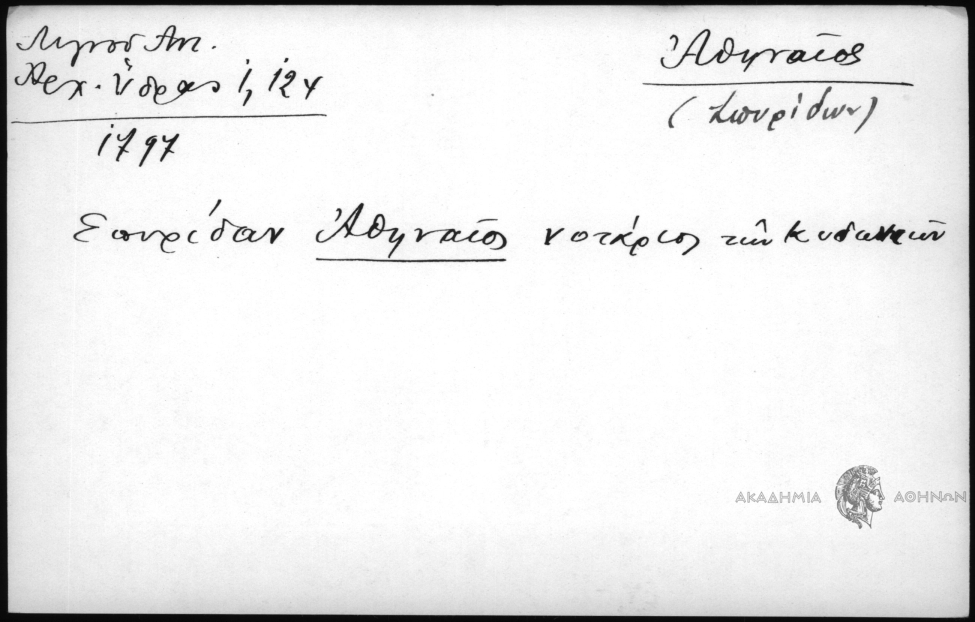 Λιγνοῦ Ἀντ.
Ἀρχ. Ὕδρας 1, 124
1797
Ἀθηναῖος
(Σπυρίδων)
Σπυρίδων Ἀθηναῖος νοτάριος τῶν Κυδωνιῶν
ΑΚΑΔΗΜΙΑ ΑΘΗΝΩΝ